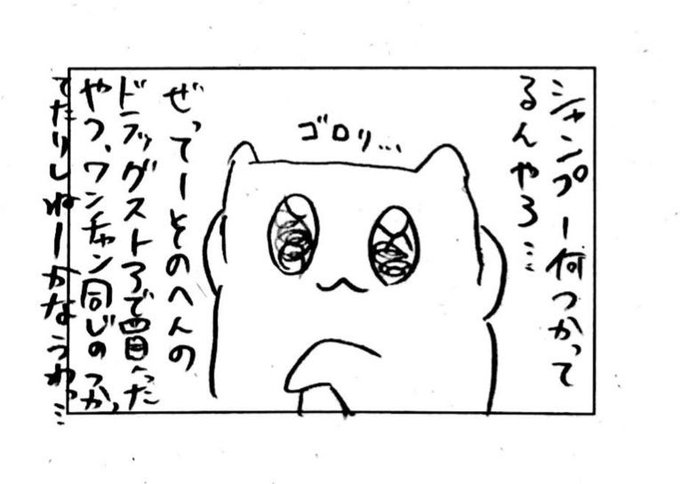 シャンプー何つかって
るんやろ…
ゴロリ…
ぜってーそのへんの
ドラッグストアで買った
やつ、ワンチャン同じのつかっ
てたりしねーかなうわっ…